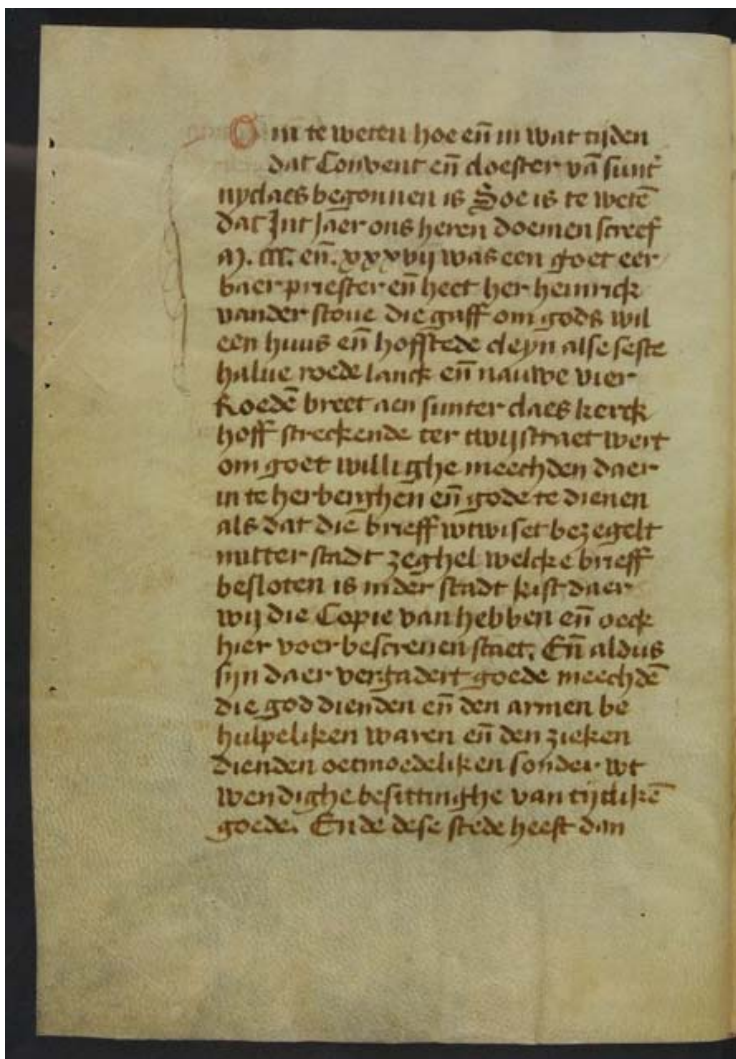 Om te weten hoe en̄ in wat tijden
dat Convent en̄ cloester vā sunt
nyclaes begonnen is Soe is te wetē
dat Int Jaer ons heren doemen screef
M. CCC. en̄. xxxvij was een goet eer
baer priester en̄ heet her heinrick
vander stoue die gaff om gods wil
een huus en̄ hoffstede cleyn alse seste
halue roede lanck en̄ nauwe vier
Roedē breet aen sunter claes kerck
hoff streckende ter twijstraet wert
om goet willighe meechden daer
in te herberghen en̄ gode te dienen
als dat die brieff wtwiset bezegelt
mitter stadt zeghel welcke brieff
besloten is inder stadt kist daer
wij die Copie van hebben en̄ oeck
hier voer bescreuen staet. En̄ aldus
sijn daer vergadert goede meechdē
die god dienden en̄ den armen be
hulpeliken waren en̄ den zieken
dienden oetmoedeliken sonder wt
wendighe besittinghe van tijtlikē
goede. Ende dese stede heeft dan